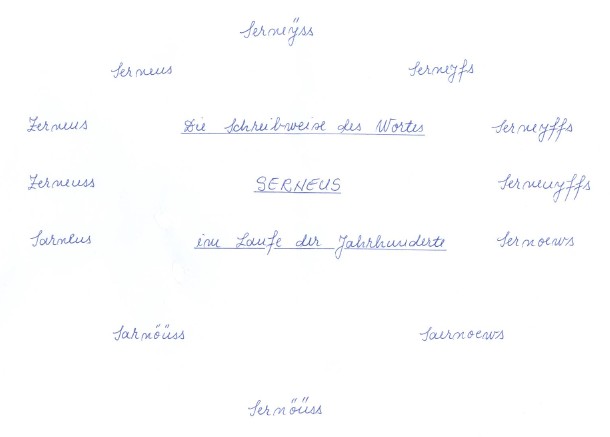 Serneÿss
Serneus Serneyfs
Zerneus Die Schreibweise des Wortes Serneyffs
Zerneuss SERNEUS Serneuyffs
Sarneus im Laufe der Jahrhunderte Sernoews
Sarnöüss Saernoews
Sernöüss